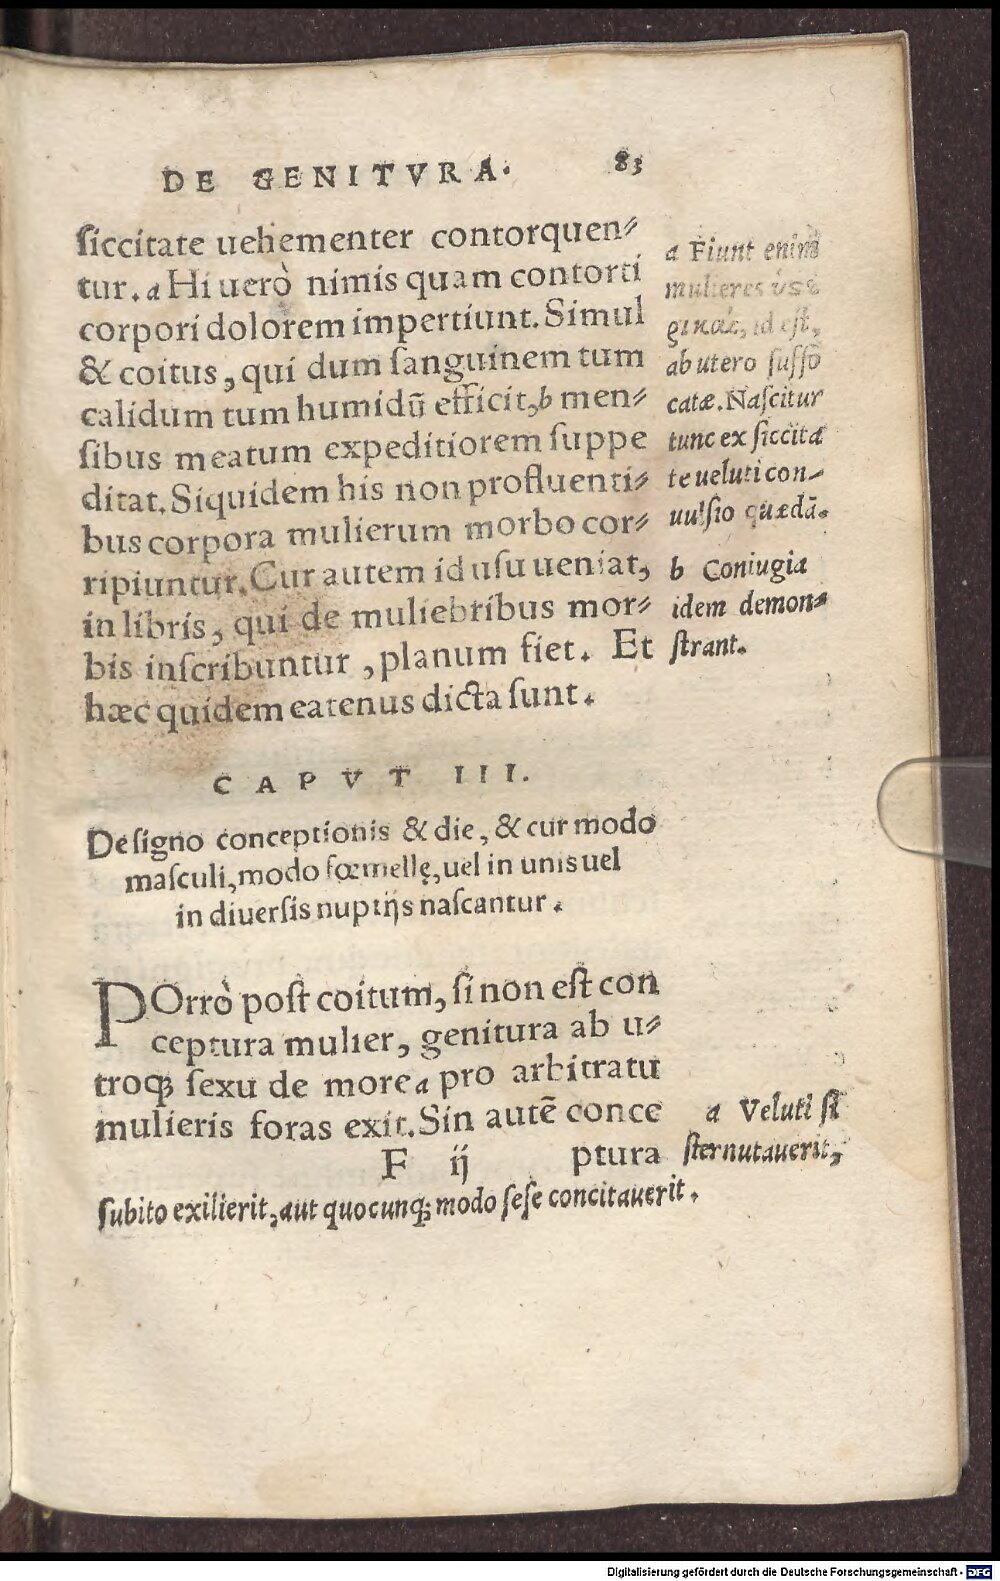 DE GENITVRA. 83
siccitate uehementer contorquen⸗
tur. a Hi uerò nimis quam contorti
corpori dolorem impertiunt. Simul
& coitus, qui dum sanguinem tum
calidum tum humidũ efficit, b men⸗
sibus meatum expeditiorem suppe
ditat. Siquidem his non profluenti⸗
bus corpora mulierum morbo cor⸗
ripiuntur. Cur autem id usu ueniat,
in libris, qui de muliebribus mor⸗
bis inscribuntur, planum fiet. Et
hæc quidem eatenus dicta sunt.
a Fiunt enim
mulieres
id est,
ab utero suffo
catæ. Nascitur
tunc ex siccita
te ueluti con⸗
uulsio quædã.
b Coniugia
idem demon⸗
strant.
CAPVT III.
De signo conceptionis & die, & cur modo
masculi, modo fœmellę, uel in unis uel
in diuersis nuptijs nascantur.
POrrò post coitum, si non est con
ceptura mulier, genitura ab u⸗
troq; sexu de more a pro arbitratu
mulieris foras exit. Sin autẽ conce
F ij ptura
a Veluti si
sternutauerit,
subito exilierit, aut quocunq; modo sese concitauerit.
Digitalisierung gefördert durch die Deutsche Forschungsgemeinschaft - DFG